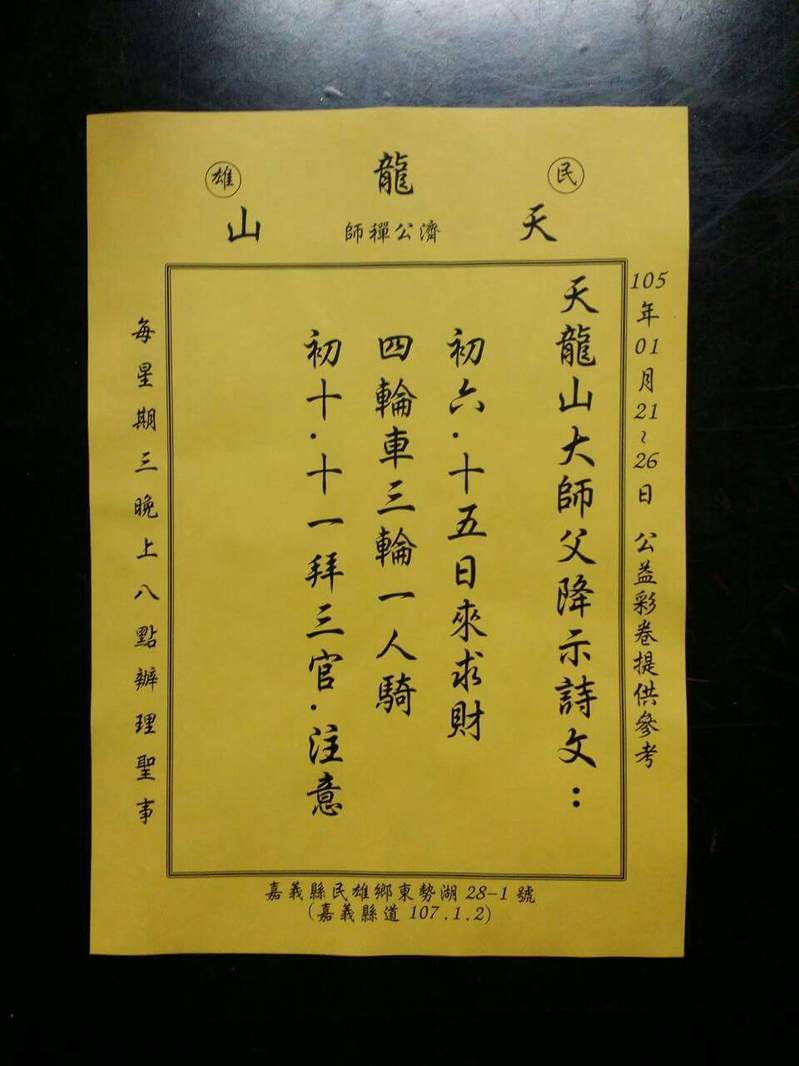 民雄
天龍山
濟公禪師
105年01月21~26日 公益彩卷提供參考
天龍山大師父降示詩文：
初六．十五日來求財
四輪車三輪一人騎
初十．十一拜三官．注意
每星期三晚上八點辦理聖事
嘉義縣民雄鄉東勢湖28-1號
(嘉義縣道107.1.2)